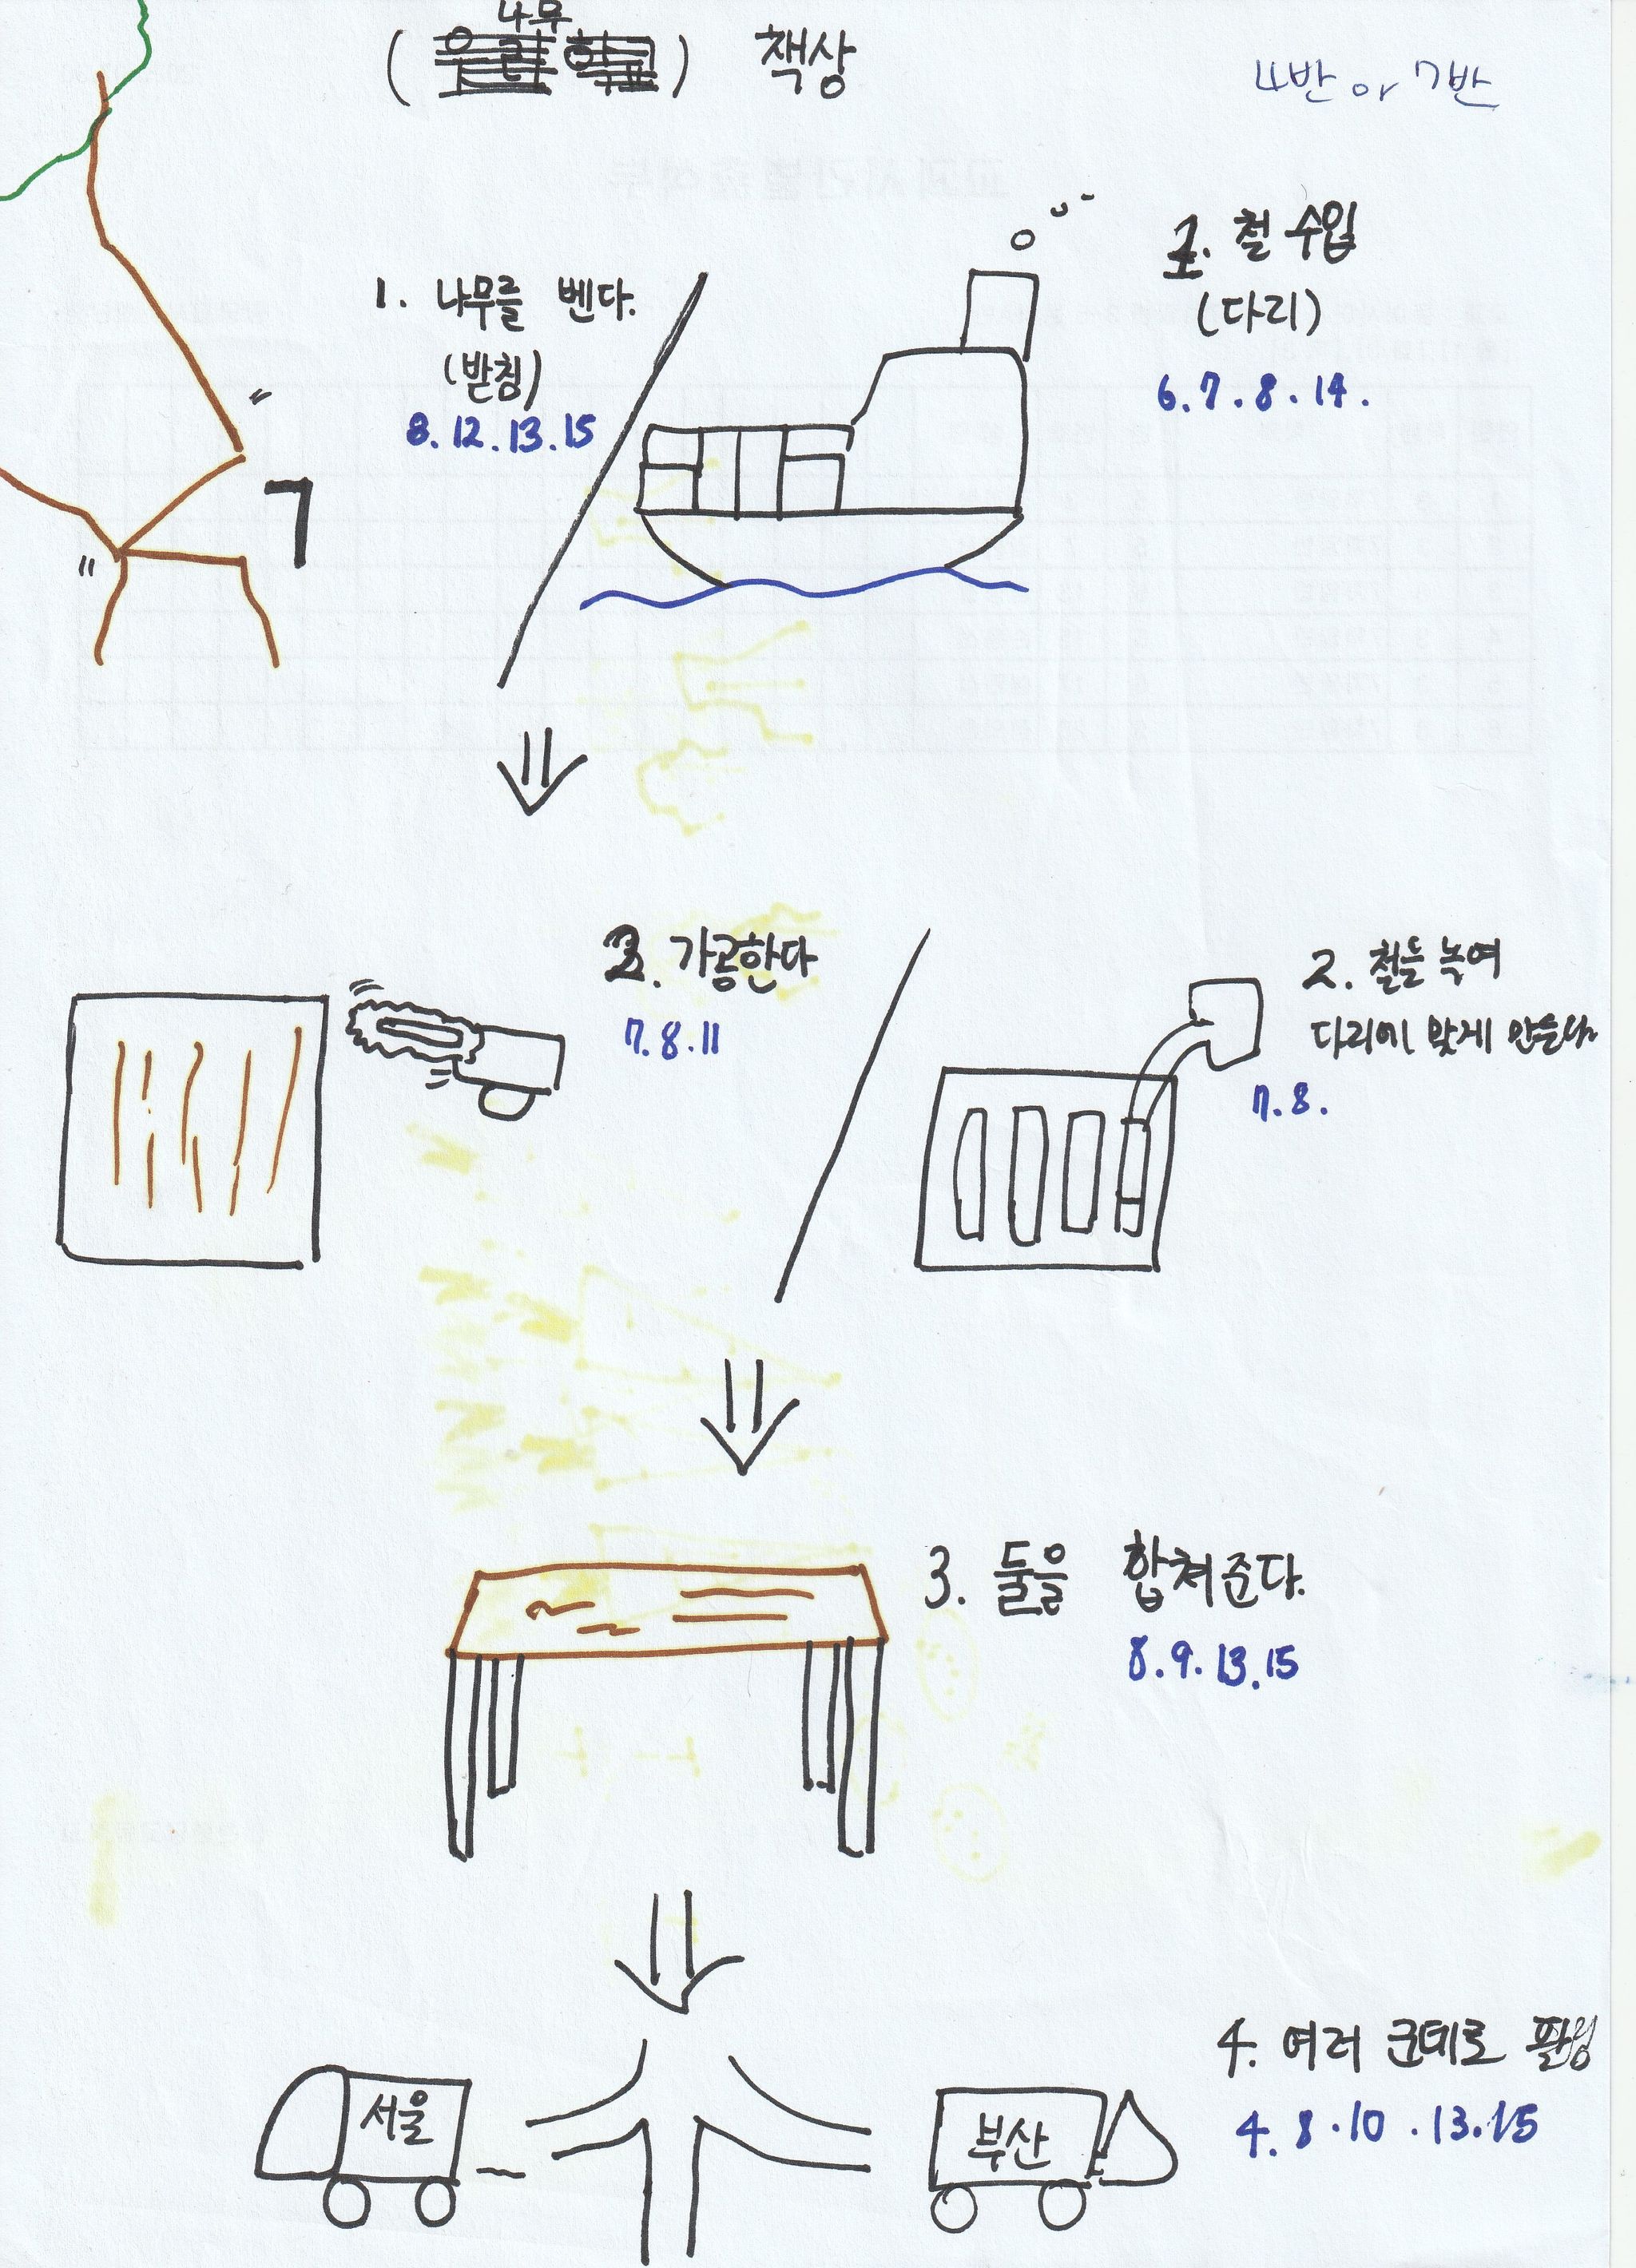 나무
( ) 책상
4반 or 7반
1. 나무를 벤다.
(받침)
8.12.13.15
1. 철 수입
(다리)
6.7.8.14.
2. 가공한다
7.8.11
2. 철을 녹여
다리에 맞게 만든다
7.8.
3. 둘을 합쳐준다.
8.9.13.15
서울
부산
4. 여러 군데로
4.8.10.13.15